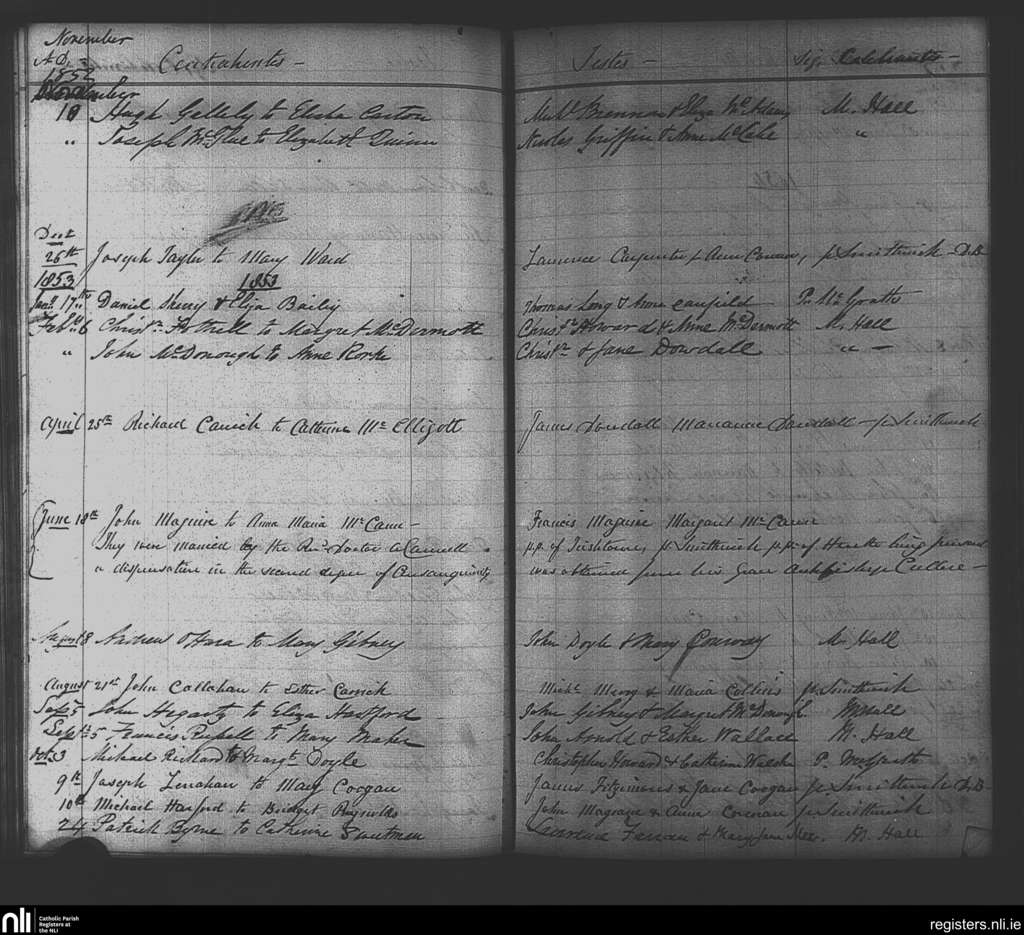 November
A.D. Contrahentes — Testes — Sig. Celebrantis —
1852
November
18 Hugh Gellely to Elisha Carton Brennan & Eliza M. Hall
" Joseph McGlue to Elizabeth Quinn Nicolas Griffin & Anne McCabe "
1853
Dect
26th Joseph Taylor to Mary Ward Laurence Carpenter Anne p Smithwick D.D.
1853 1853
Jany. 17th Daniel Sherry & Eliza Baily Thomas Long & Anne Canfield Pr. McGrath
Feby. 6 Christr. to Margret McDermott Christr. Howard & Anne McDermott M. Hall
" John McDonough to Anne Rorke Christr. & Jane Dowdall " —
April 25th Richard Carrick to Catherine McElligott James Dowdall Marianne Dowdall — p Smithwick
June 18th John Maguire to Anna Maria McCann — Francis Maguire Margaret McCann
They were married by the Revd. Doctor P.P. of Irishtown, p Smithwick p.p. of being present
a dispensation in the second degree of Consanguinity was obtained from his Grace Archbishop Cullen —
August 8 Andrew O'Hara to Mary Gibney John Doyle & Mary Conway M. Hall
August 21st John Callahan to Esther Carrick Michl. Merry & Maria Collins p Smithwick
Sept. 5 John Hegarty to Eliza Hartford John Gibney & Margret McDonough M Hall
Sept. 5 Francis Russell to Mary Maher John Arnold & Esther Wallace M. Hall
Oct. 3 Michael Richard to Margt. Doyle Christopher Howard & Catherine Walsh P.
9th Joseph Lenahan to Mary Coogan James Fitzsimons & Jane Coogan p Smithwick D.D.
10th Michael Harford to Bridget Reynolds John & Anne p Smithwick
24 Patrick Byrne to Catherine & Mary Jane M. Hall
nli Catholic Parish
Registers at
the NLI
registers.nli.ie